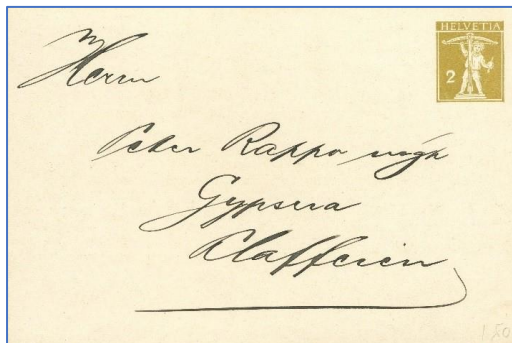 HELVETIA
2
Herrn
Peter Rappo
Gypsera
Plaffeien